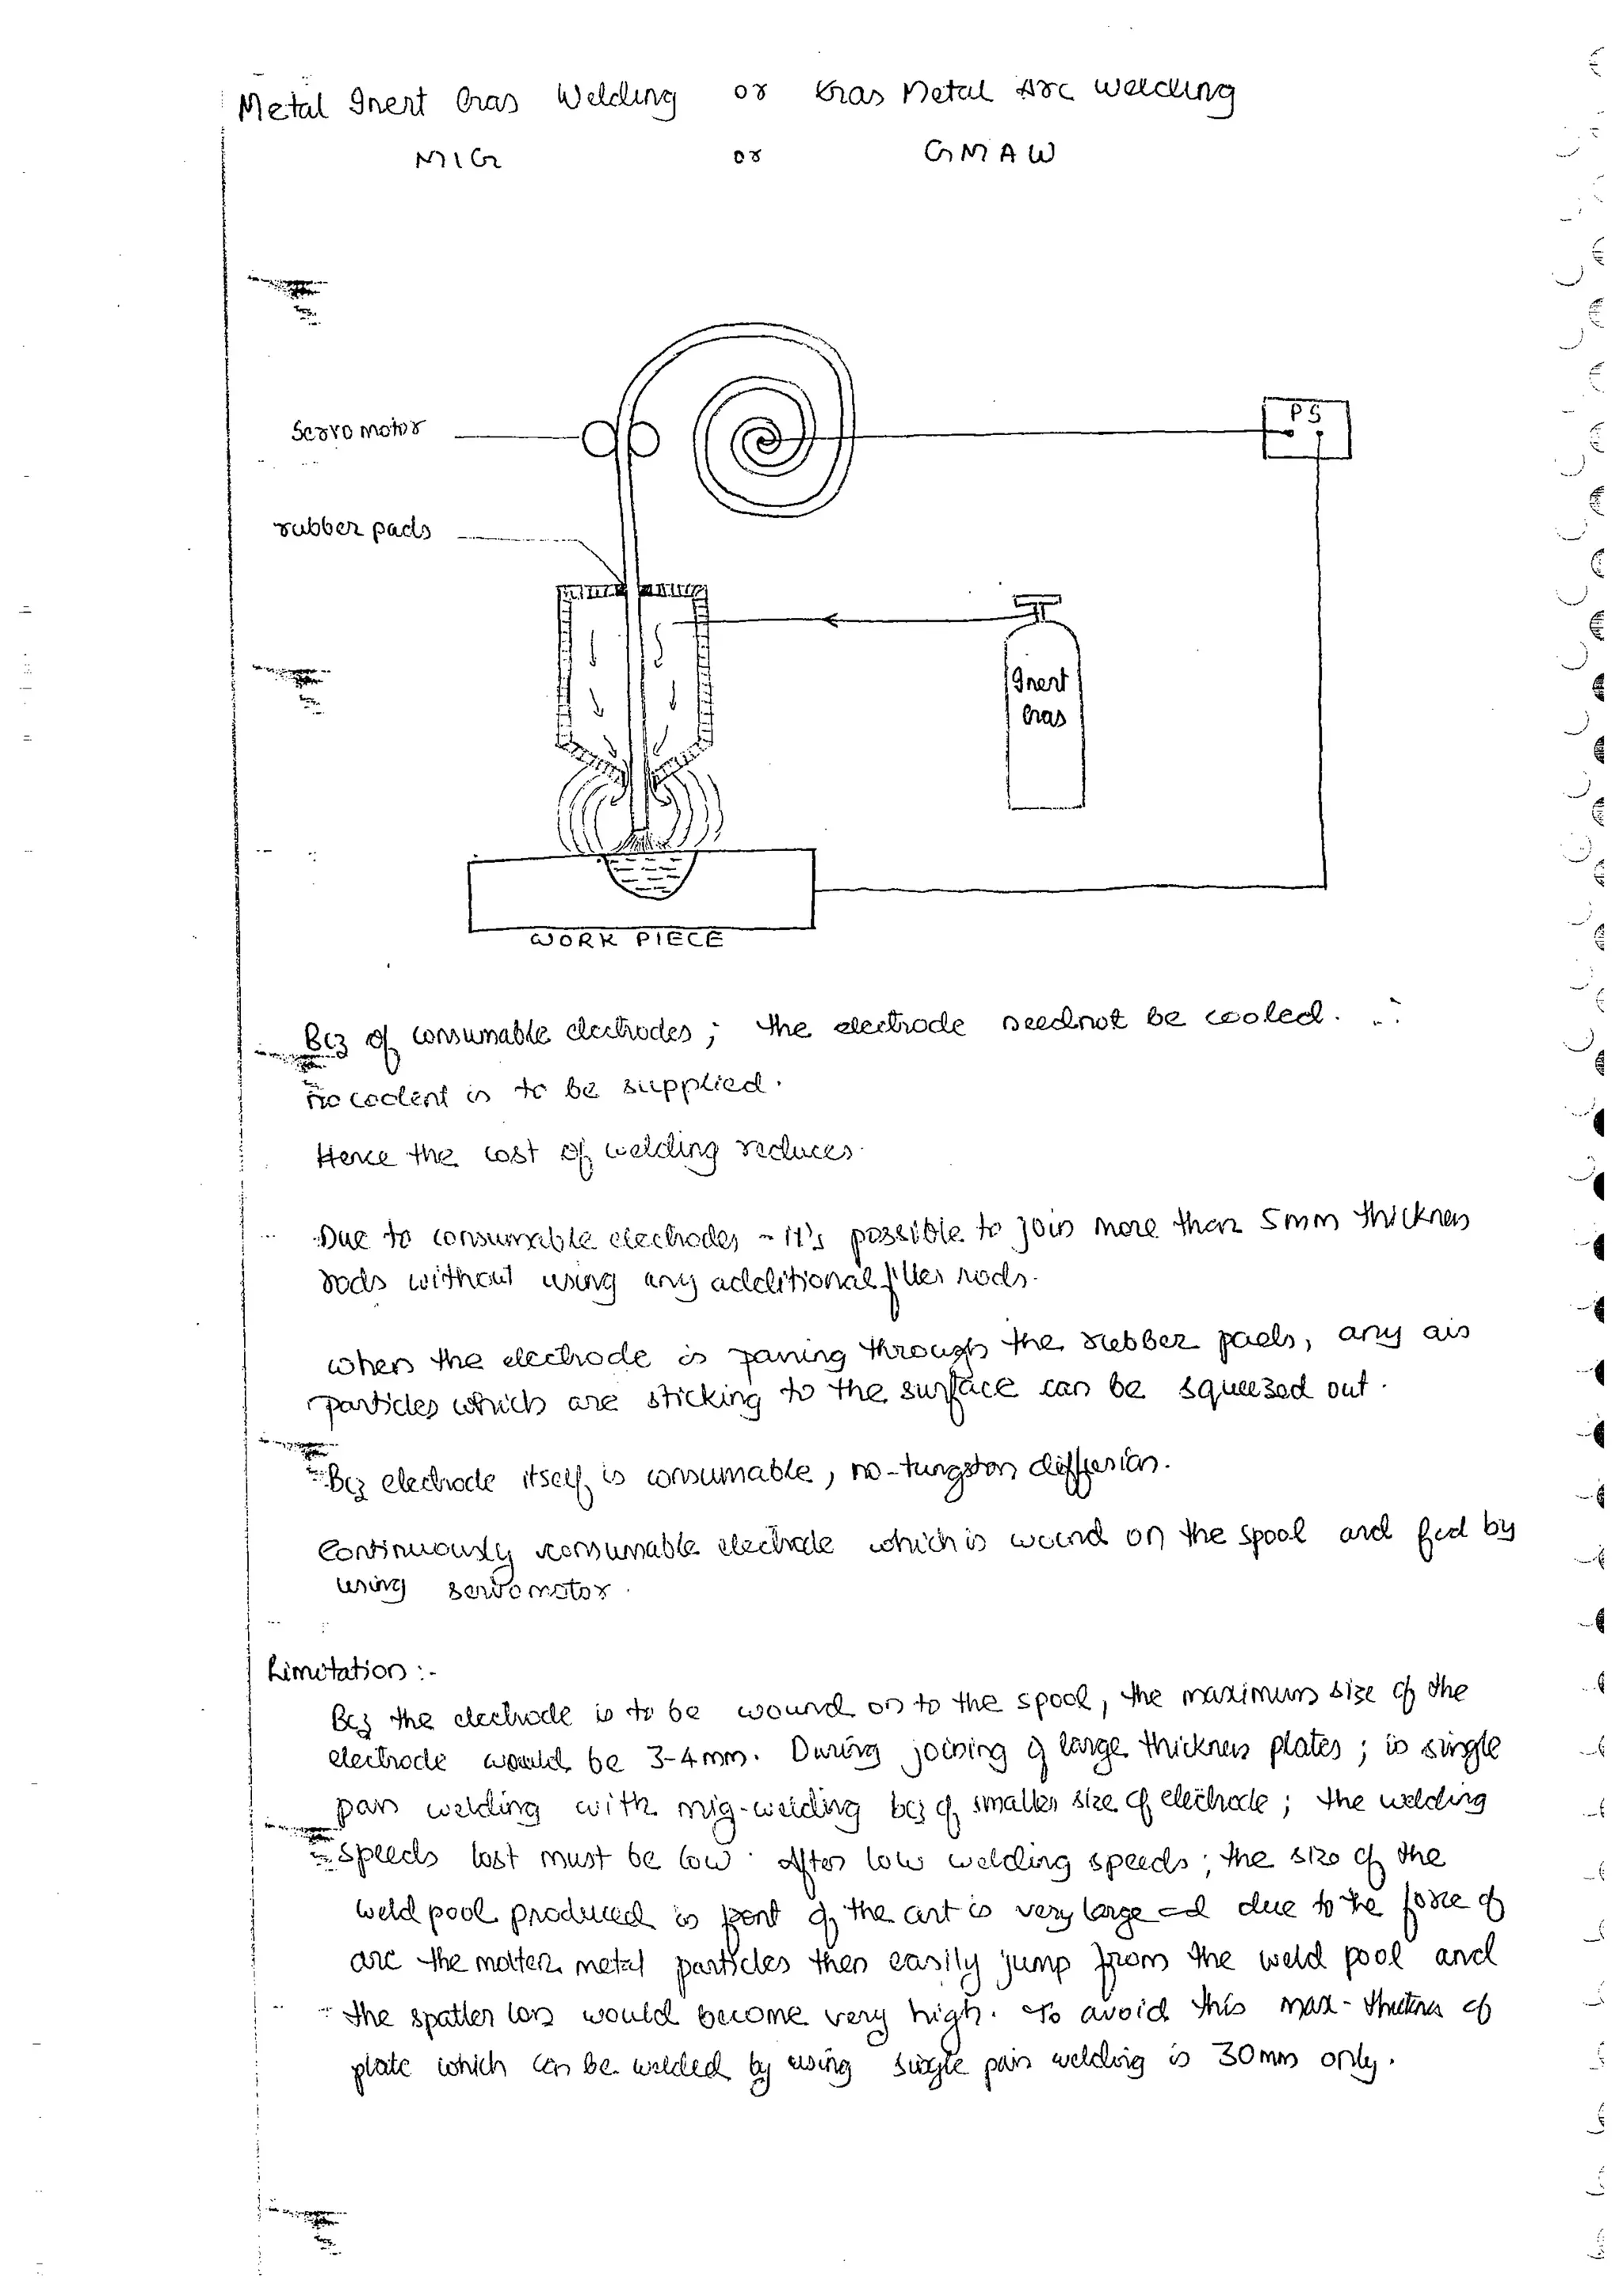 Metal Inert Gas Welding or Gas Metal Arc Welding
MIG or GMAW
Servo motor
PS
rubber pads
Inert
Gas
WORK PIECE
Bcz of consumable electrodes ; the electrode neednot be cooled. ∴
no coolent is to be supplied.
Hence the cost of welding reduces.
Due to consumable electrodes - it's possible to join more than 5mm thickness
rods without using any additional filler rods.
when the electrode is passing through the rubber pads, any air
particles which are sticking to the surface can be squeezed out.
Bcz electrode itself is consumable, no-tungston diffusion.
Continuously consumable electrode which is wound on the spool and fed by
using servomotor.
Limitation :-
Bcz the electrode is to be wound on to the spool, the maximum size of the
electrode would be 3-4mm. During joining of large thickness plates ; in single
pass welding with mig-welding bcz of smaller size of electrode ; the welding
speeds must be low. After low welding speeds ; the size of the
weld pool produced is of the is very large due to the force of
arc the molten metal particles then easily jump from the weld pool and
the spatter loss would become very high. To avoid this max- thickness of
plate which can be welded by using single pass welding is 30mm only.